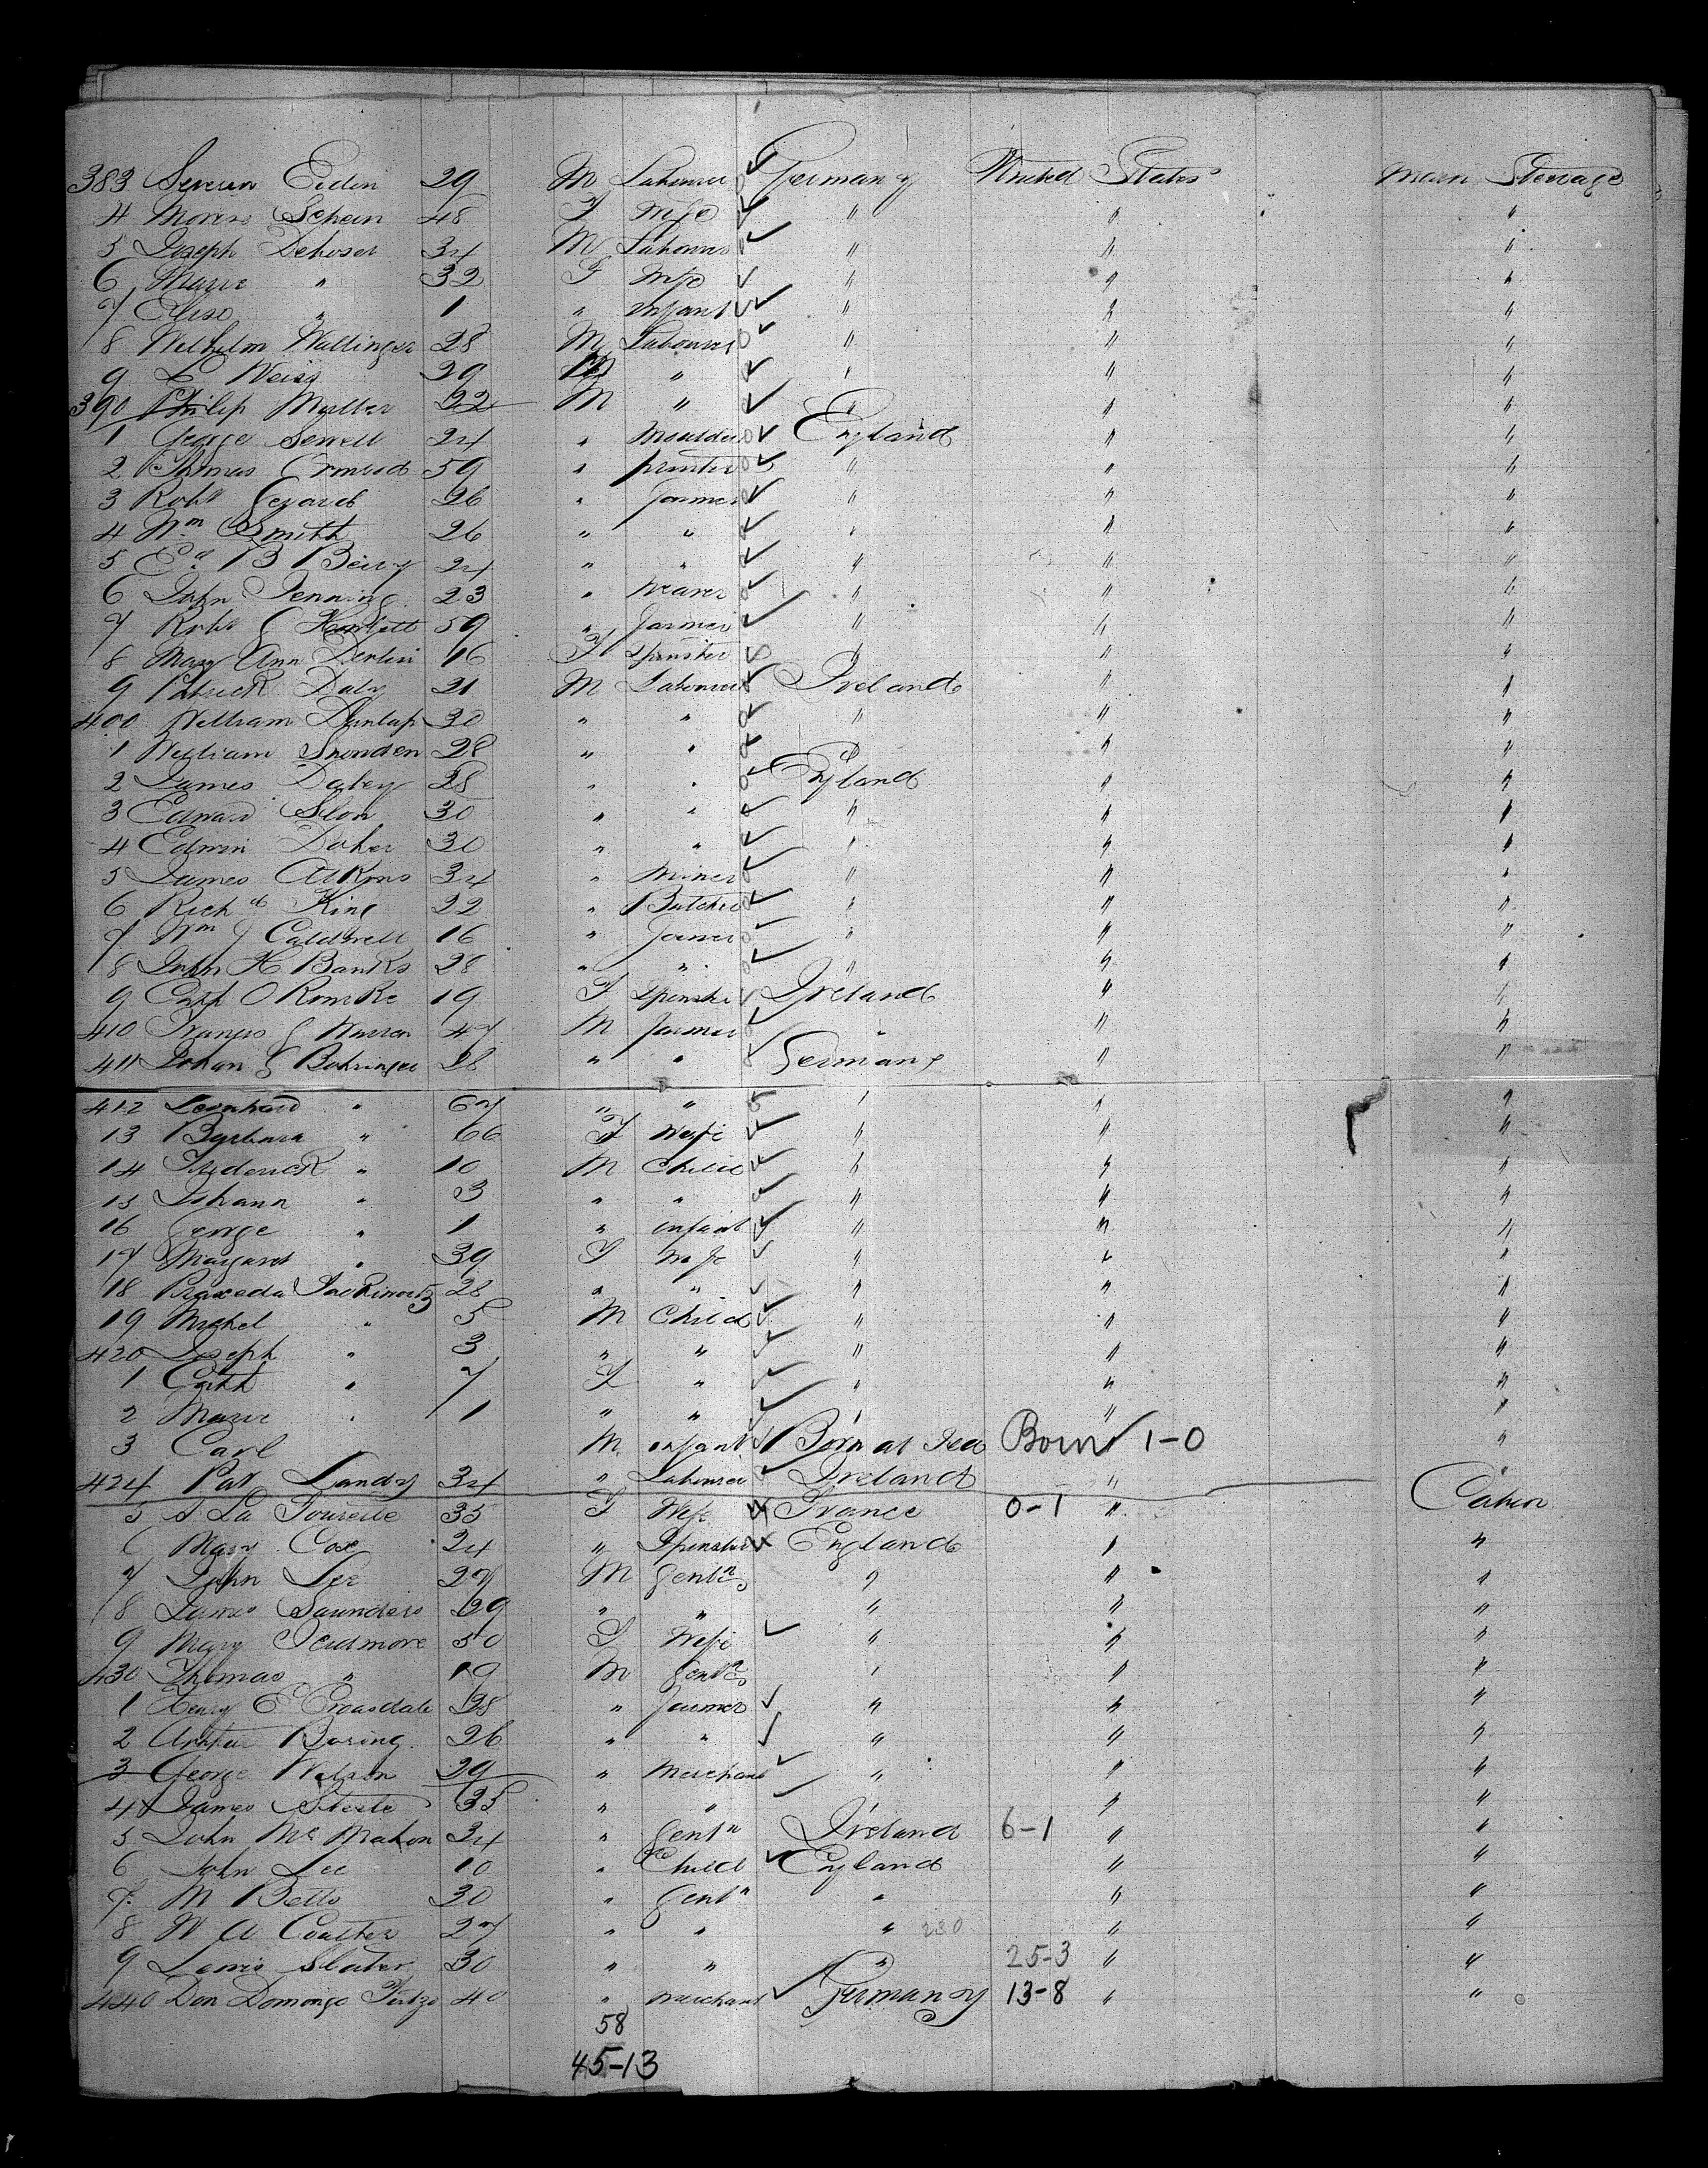 383 Severin Eidin 29 M Labourer Germany United States Main Steerage
4 Schein 48 F Wife " " "
5 Joseph Dehoser 34 M Labourer " " "
6 Marie " 32 F Wife " " "
7 Elise " 1 " Infant " " "
8 Wilhelm Wallinger 28 M Labourer " " "
9 L Weiss 29 M " " " "
390 Philip Muller 22 M " " " "
1 George Sewell 24 " Moulder England " "
2 Thomas Ormerod 59 " printer " " "
3 Robt 26 " Farmer " " "
4 Wm Smith 26 " " " " "
5 Ed B 24 " " " " "
6 John Jenning 23 " Weaver " " "
7 Robt J 59 " Farmer " " "
8 Mary Ann Devlin 16 F Spinster " " "
9 Patrick Daly 21 M Labourer Ireland " "
400 William Dunlap 30 " " " " "
1 William Snowden 28 " " " " "
2 James Daley 28 " " England " "
3 Edward Slon 30 " " " " "
4 Edwin Doher 30 " " " " "
5 James Atkins 34 " Miner " " "
6 Richd King 22 " Butcher " " "
7 Wm J Caldwell 16 " Farmer " " "
8 John H Banks 28 " " " " "
9 Cath O Rourke 19 F Spinster Ireland " "
410 Francis J Warren 47 M Farmer " " "
411 Johan G Bohringer 28 " " Germany " "
412 Leonhard " 67 " " " " "
13 Barbara " 66 F Wife " " "
14 Frederick " 10 M Child " " "
15 Johann " 3 " " " " "
16 George " 1 " infant " " "
17 Margaret " 39 F Wife " " "
18 Praxeda 28 " " " " "
19 Michel " 5 M Child " " "
420 Joseph " 3 " " " " "
1 Cath " 7 F " " " "
2 Marie " 1 " " " " "
3 Carl M infant Born at Sea Born 1-0 "
424 Pat Landy 34 " Labourer Ireland " "
5 A La Tourelle 35 F Wife France 0-1 " Cabin
6 Mary Cox 24 " Spinster England " "
7 John Lee 27 M Gentn " " "
8 James Saunders 29 " " " " "
9 Mary Scudmore 50 F Wife " " "
430 Thomas " 19 M Gentn " " "
1 Henry E Croasdale 28 " Farmer " " "
2 Arthur Boring 26 " " " " "
3 George Wilson 29 " Merchant " " "
4 James Steele 35 " " " " "
5 John McMahon 34 " Gentn Ireland 6-1 " "
6 John Lee 10 " Child England " "
7 M Betts 30 " Gentn " " "
8 W A Coulter 27 " " " 230 " "
9 Lewis Slater 30 " " " 25-3 " "
440 Don Domingo 40 " merchant Germany 13-8 " "
58
45-13